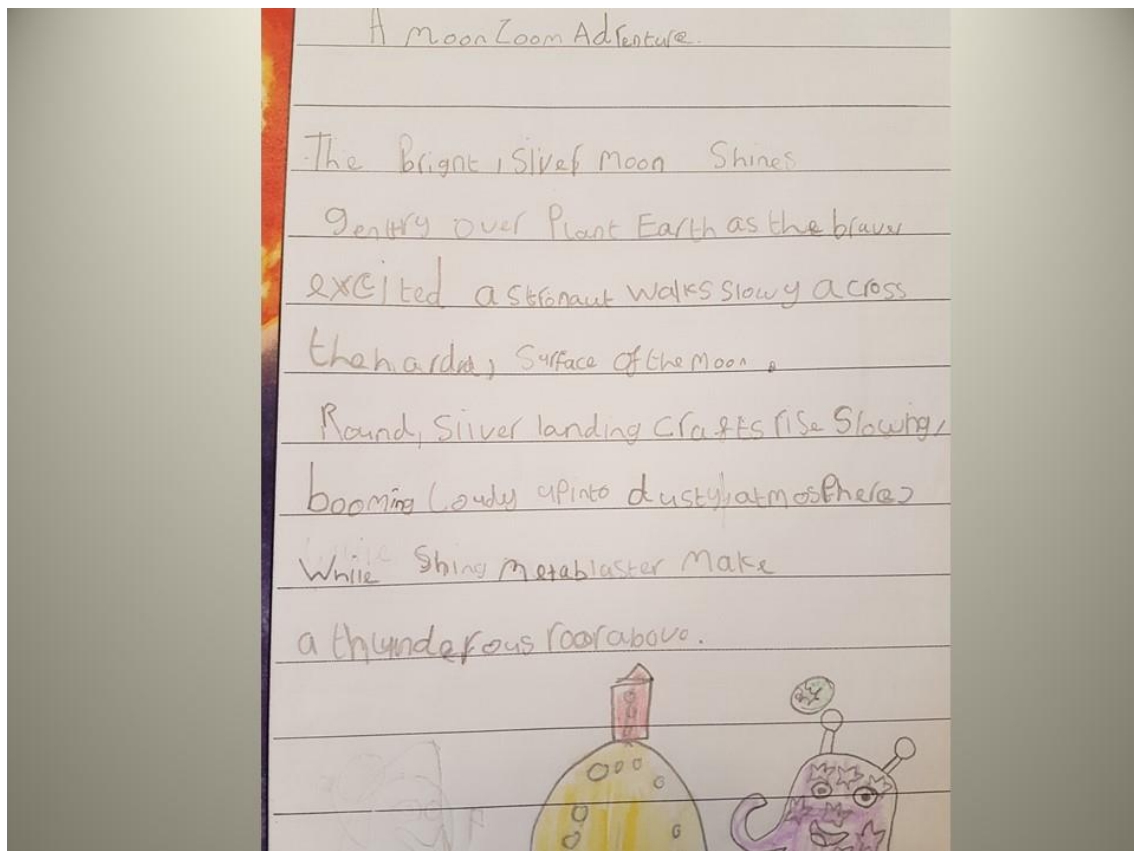 A Moon Zoom Adventure.
The Bright, Sliver Moon Shines
gently over Plant Earth as the brave
excited astronaut walks slowy across
the hard, Surface of the Moon.
Round, Sliver landing crafts rise Slowing,
booming loudy up into dusty, atmosphere,
While Shing metablaster Make
a thunderous roar above.